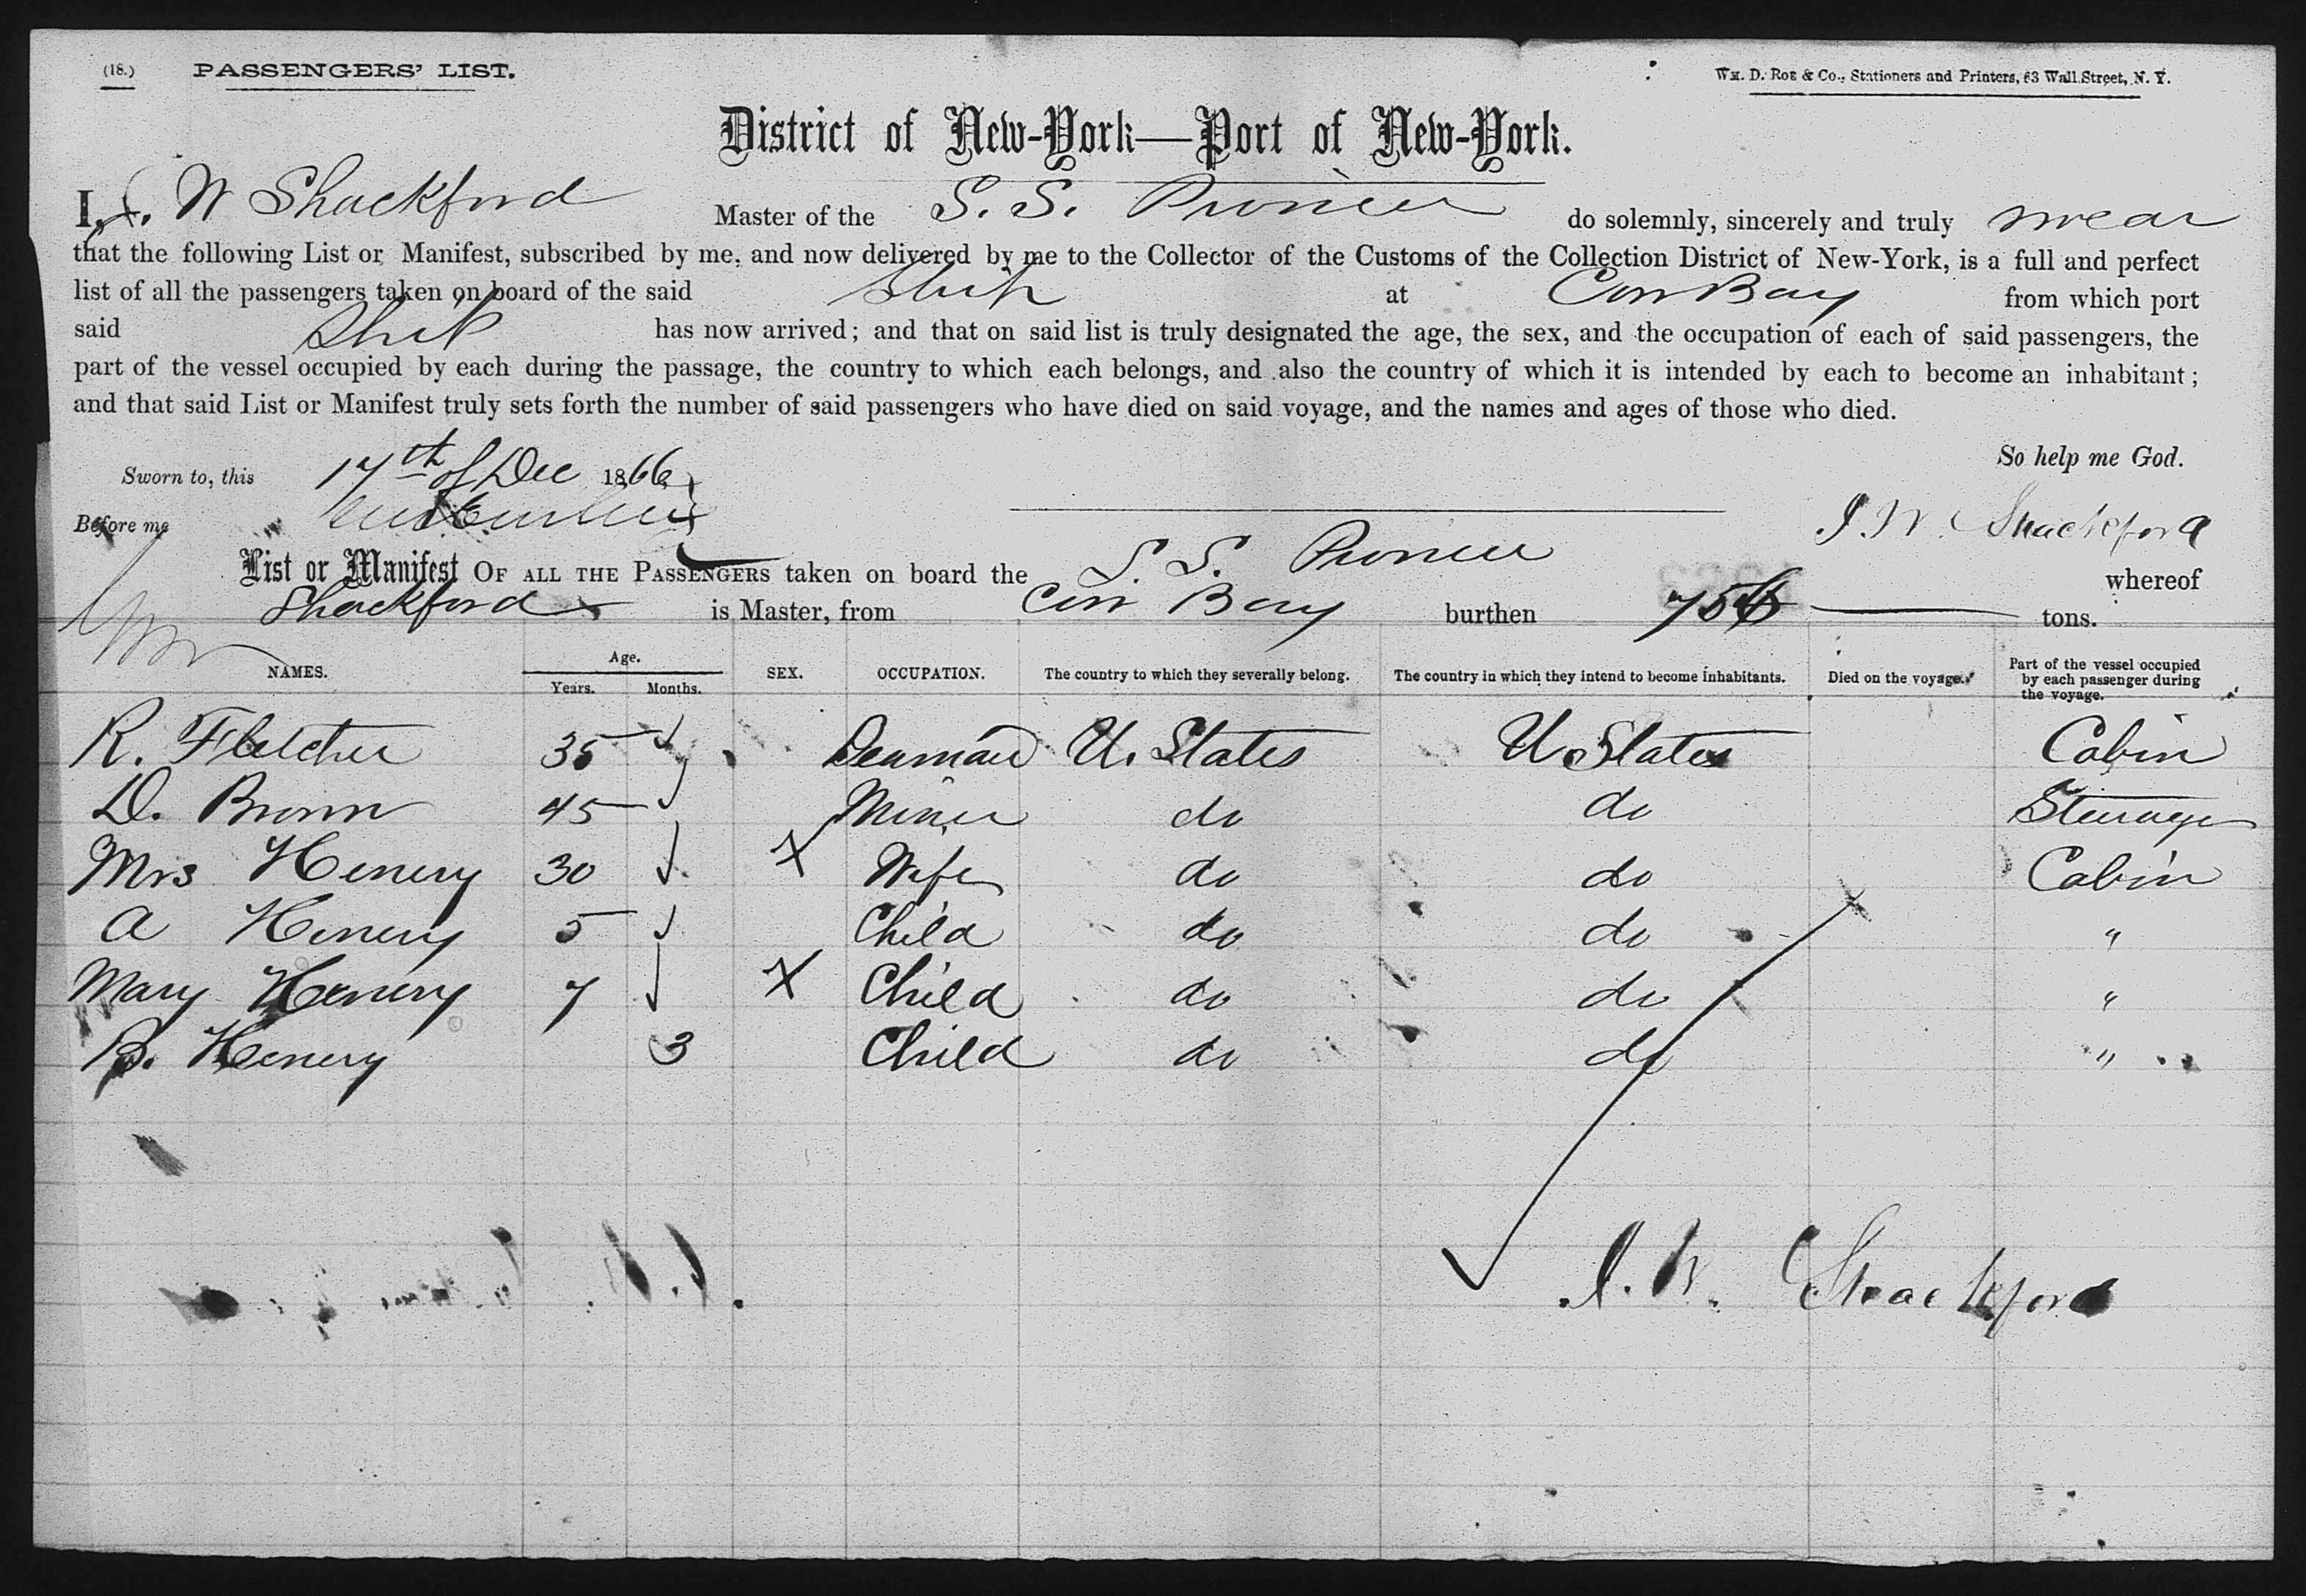 (18.) PASSENGERS' LIST.
WM. D. ROE & Co., Stationers and Printers, 63 Wall Street, N. Y.
District of New-York—Port of New-York.
I, J. W Shackford Master of the S. S. Pioneer do solemnly, sincerely and truly swear
that the following List or Manifest, subscribed by me, and now delivered by me to the Collector of the Customs of the Collection District of New-York, is a full and perfect
list of all the passengers taken on board of the said Ship at Cow Bay from which port
said Ship has now arrived; and that on said list is truly designated the age, the sex, and the occupation of each of said passengers, the
part of the vessel occupied by each during the passage, the country to which each belongs, and also the country of which it is intended by each to become an inhabitant;
and that said List or Manifest truly sets forth the number of said passengers who have died on said voyage, and the names and ages of those who died.
So help me God.
Sworn to, this 17th of Dec 1866
Before me
J. W. Shackford
List or Manifest OF ALL THE PASSENGERS taken on board the S. S. Pioneer whereof
Shackford is Master, from Cow Bay burthen 756 tons.
NAMES. Age. Years. Months. SEX. OCCUPATION. The country to which they severally belong. The country in which they intend to become inhabitants. Died on the voyage. Part of the vessel occupied by each passenger during the voyage.
R. Fletcher 35 Seaman U. States U States Cabin
D. Brown 45 Miner do do Steurage
Mrs Henery 30 X Wife do do Cabin
A Henery 5 Child do do "
Mary Henery 7 X Child do do "
B. Henery 3 Child do do "
J. W. Shackford